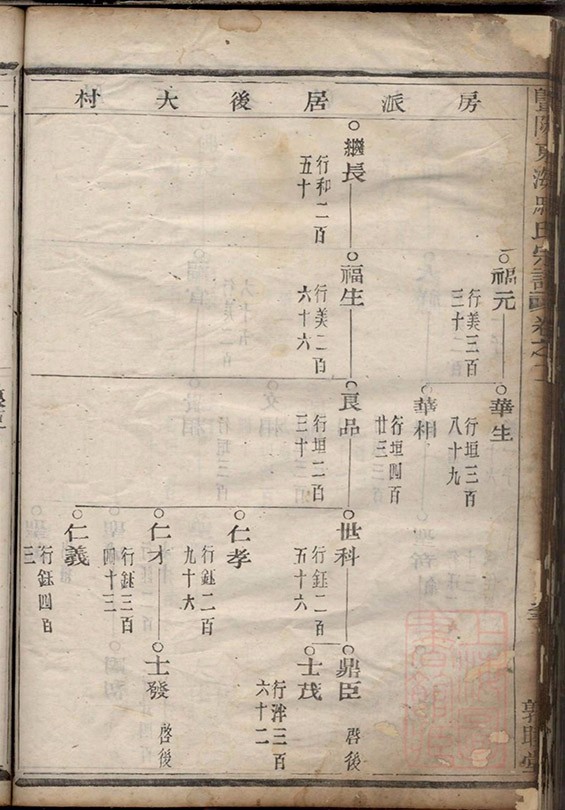 房派居後大村
福元
行美三百
三十二
華生
行垣三百
八十九
華相
行垣四百
廿三
繼長
行和二百
五十
福生
行美二百
六十六
良品
行垣二百
三十二
世科
行鈺二百
五十六
鼎臣
啓後
士茂
行泮三百
六十二
仁孝
行鈺二百
九十六
仁才
行鈺三百
四十三
士發
啓後
仁義
行鈺四百
三